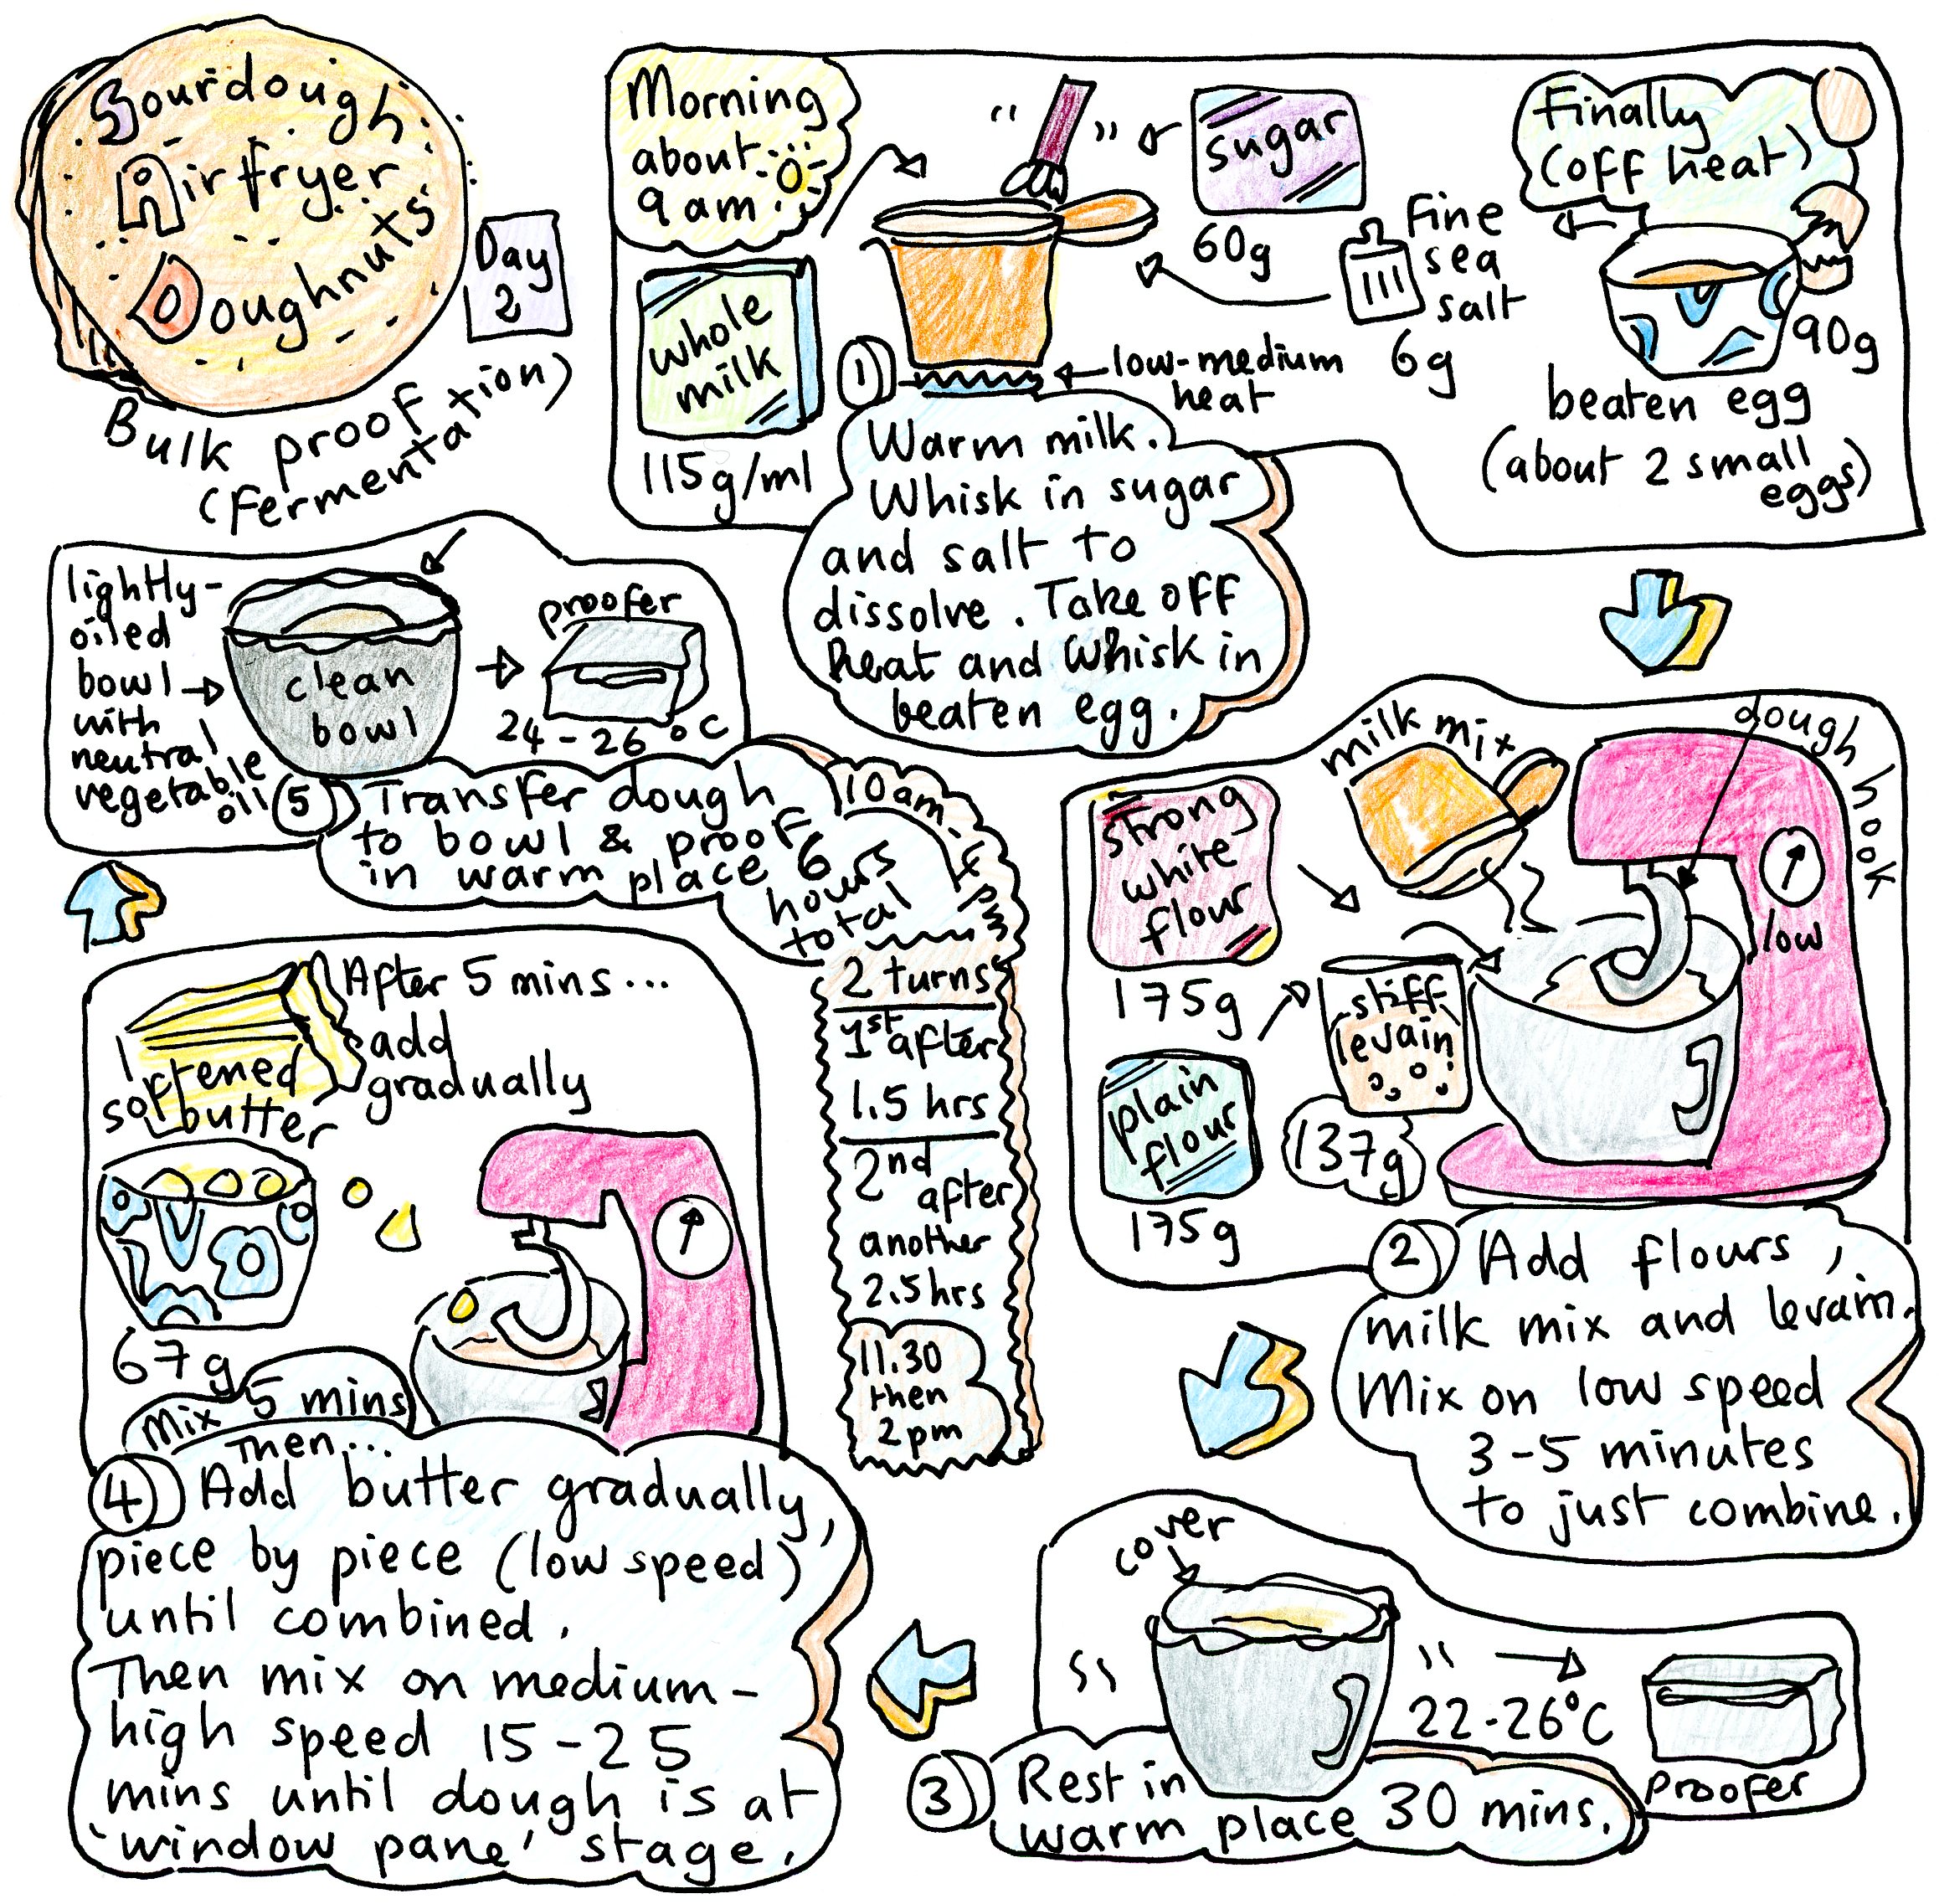 Sourdough
Airfryer
Doughnuts
Day
2
Bulk proof
(fermentation)
Morning
about
9am
whole
milk
115g/ml
sugar
60g
Fine
sea
salt
6g
low-medium
heat
Finally
(off heat)
90g
beaten egg
(about 2 small
eggs)
1
Warm milk.
Whisk in sugar
and salt to
dissolve. Take off
heat and whisk in
beaten egg.
milk mix
dough hook
strong
white
flour
175g
stiff
levain
137g
plain
flour
175g
low
2 Add flours,
milk mix and levain.
Mix on low speed
3-5 minutes
to just combine.
cover
22-26°C
proofer
3 Rest in
warm place 30 mins.
After 5 mins...
add
gradually
softened
butter
67g
Mix 5 mins
Then...
4 Add butter gradually,
piece by piece (low speed)
until combined.
Then mix on medium-
high speed 15-25
mins until dough is at
'window pane' stage.
lightly-
oiled
bowl
with
neutral
vegetable
oil
clean
bowl
proofer
24-26°C
5 Transfer dough
to bowl & proof
in warm place 6
hours
total
10am-
4pm
2 turns
1st after
1.5 hrs
2nd
after
another
2.5hrs
11.30
then
2pm